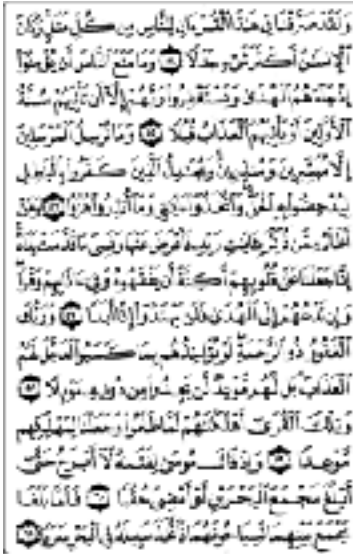 وَلَقَدْ صَرَّفْنَا فِي هَٰذَا الْقُرْآنِ لِلنَّاسِ مِن كُلِّ مَثَلٍ وَكَانَ
الْإِنسَانُ أَكْثَرَ شَيْءٍ جَدَلًا ۝٥٤ وَمَا مَنَعَ النَّاسَ أَن يُؤْمِنُوا
إِذْ جَاءَهُمُ الْهُدَىٰ وَيَسْتَغْفِرُوا رَبَّهُمْ إِلَّا أَن تَأْتِيَهُمْ سُنَّةُ
الْأَوَّلِينَ أَوْ يَأْتِيَهُمُ الْعَذَابُ قُبُلًا ۝٥٥ وَمَا نُرْسِلُ الْمُرْسَلِينَ
إِلَّا مُبَشِّرِينَ وَمُنذِرِينَ وَيُجَادِلُ الَّذِينَ كَفَرُوا بِالْبَاطِلِ
لِيُدْحِضُوا بِهِ الْحَقَّ وَاتَّخَذُوا آيَاتِي وَمَا أُنذِرُوا هُزُوًا ۝٥٦ وَمَنْ
أَظْلَمُ مِمَّن ذُكِّرَ بِآيَاتِ رَبِّهِ فَأَعْرَضَ عَنْهَا وَنَسِيَ مَا قَدَّمَتْ يَدَاهُ
إِنَّا جَعَلْنَا عَلَىٰ قُلُوبِهِمْ أَكِنَّةً أَن يَفْقَهُوهُ وَفِي آذَانِهِمْ وَقْرًا
وَإِن تَدْعُهُمْ إِلَى الْهُدَىٰ فَلَن يَهْتَدُوا إِذًا أَبَدًا ۝٥٧ وَرَبُّكَ
الْغَفُورُ ذُو الرَّحْمَةِ لَوْ يُؤَاخِذُهُم بِمَا كَسَبُوا لَعَجَّلَ لَهُمُ
الْعَذَابَ بَل لَّهُم مَّوْعِدٌ لَّن يَجِدُوا مِن دُونِهِ مَوْئِلًا ۝٥٨
وَتِلْكَ الْقُرَىٰ أَهْلَكْنَاهُمْ لَمَّا ظَلَمُوا وَجَعَلْنَا لِمَهْلِكِهِم
مَّوْعِدًا ۝٥٩ وَإِذْ قَالَ مُوسَىٰ لِفَتَاهُ لَا أَبْرَحُ حَتَّىٰ
أَبْلُغَ مَجْمَعَ الْبَحْرَيْنِ أَوْ أَمْضِيَ حُقُبًا ۝٦٠ فَلَمَّا بَلَغَا
مَجْمَعَ بَيْنِهِمَا نَسِيَا حُوتَهُمَا فَاتَّخَذَ سَبِيلَهُ فِي الْبَحْرِ سَرَبًا ۝٦١